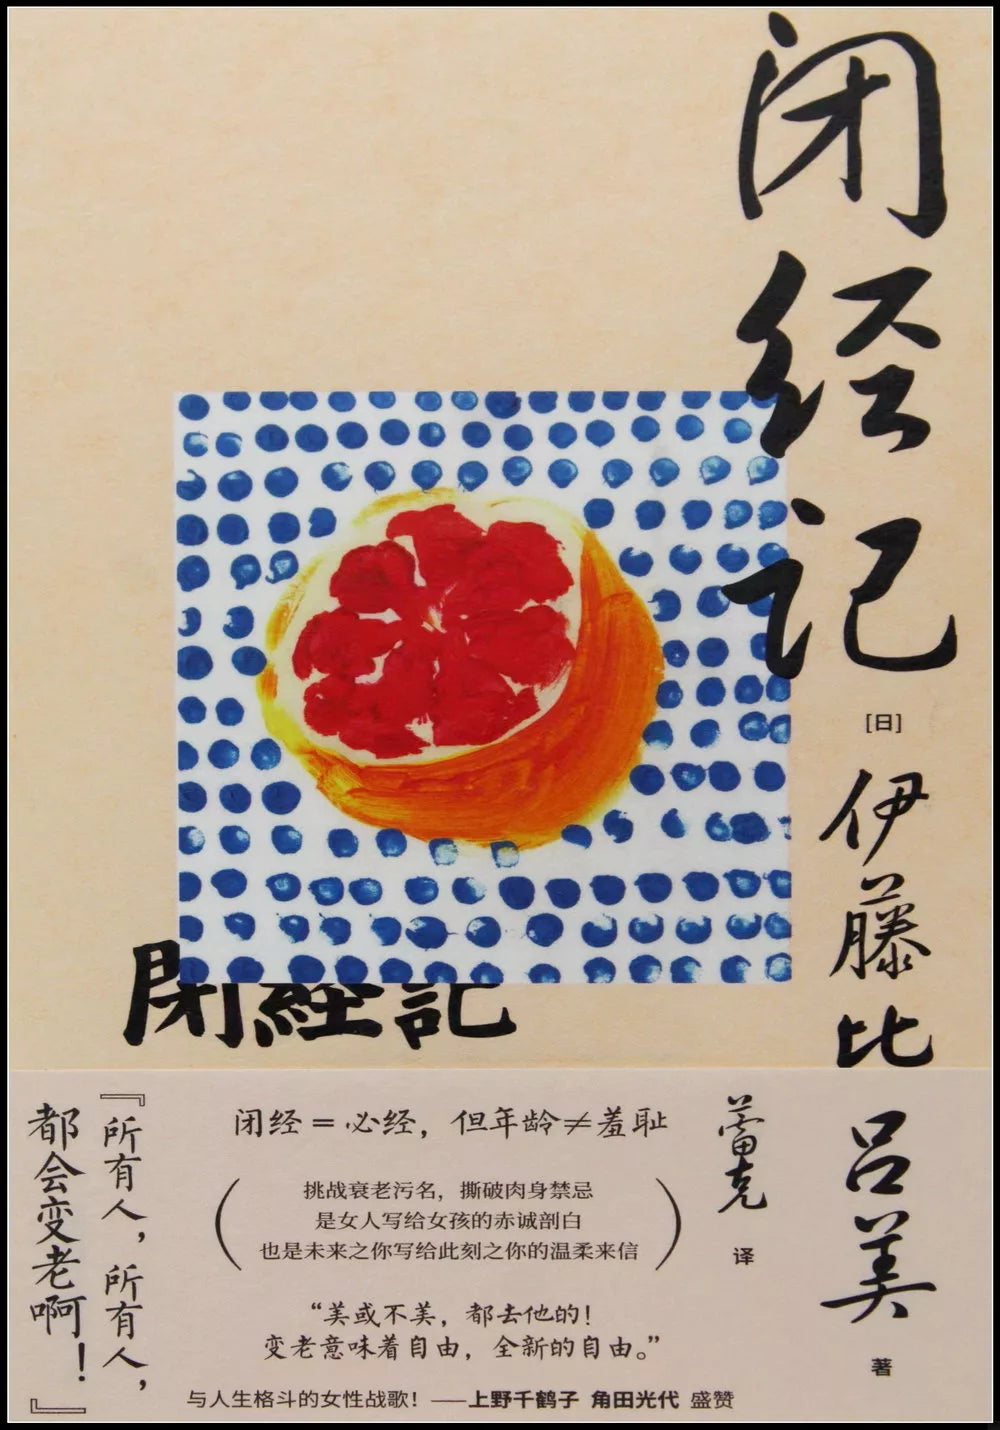 闭经记
[日]
伊藤比吕美
著
蕾克
译
閉経記
『所有人，所有人，
都会变老啊！』
闭经＝必经，但年龄≠羞耻
（挑战衰老污名，撕破肉身禁忌
是女人写给女孩的赤诚剖白
也是未来之你写给此刻之你的温柔来信）
“美或不美，都去他的！
变老意味着自由，全新的自由。”
与人生格斗的女性战歌！——上野千鹤子 角田光代 盛赞